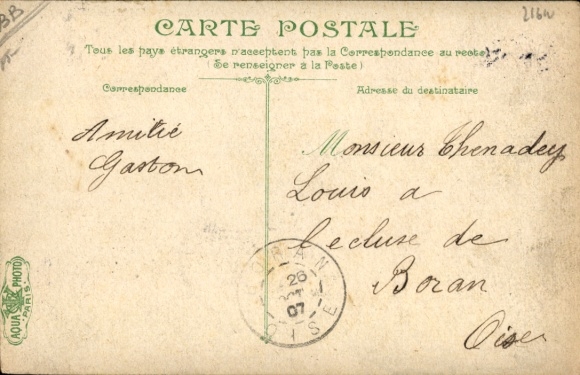 BB
216w
CARTE POSTALE
Tous les pays étrangers n'acceptent pas la Correspondance au recto
(Se renseigner à la Poste)
Correspondance
Adresse du destinataire
Amitié
Gaston
Monsieur Thenadey
Louis a
l'ecluse de
Boran
Oise
BORAN
26
07
OISE
AQUA PHOTO
PARIS